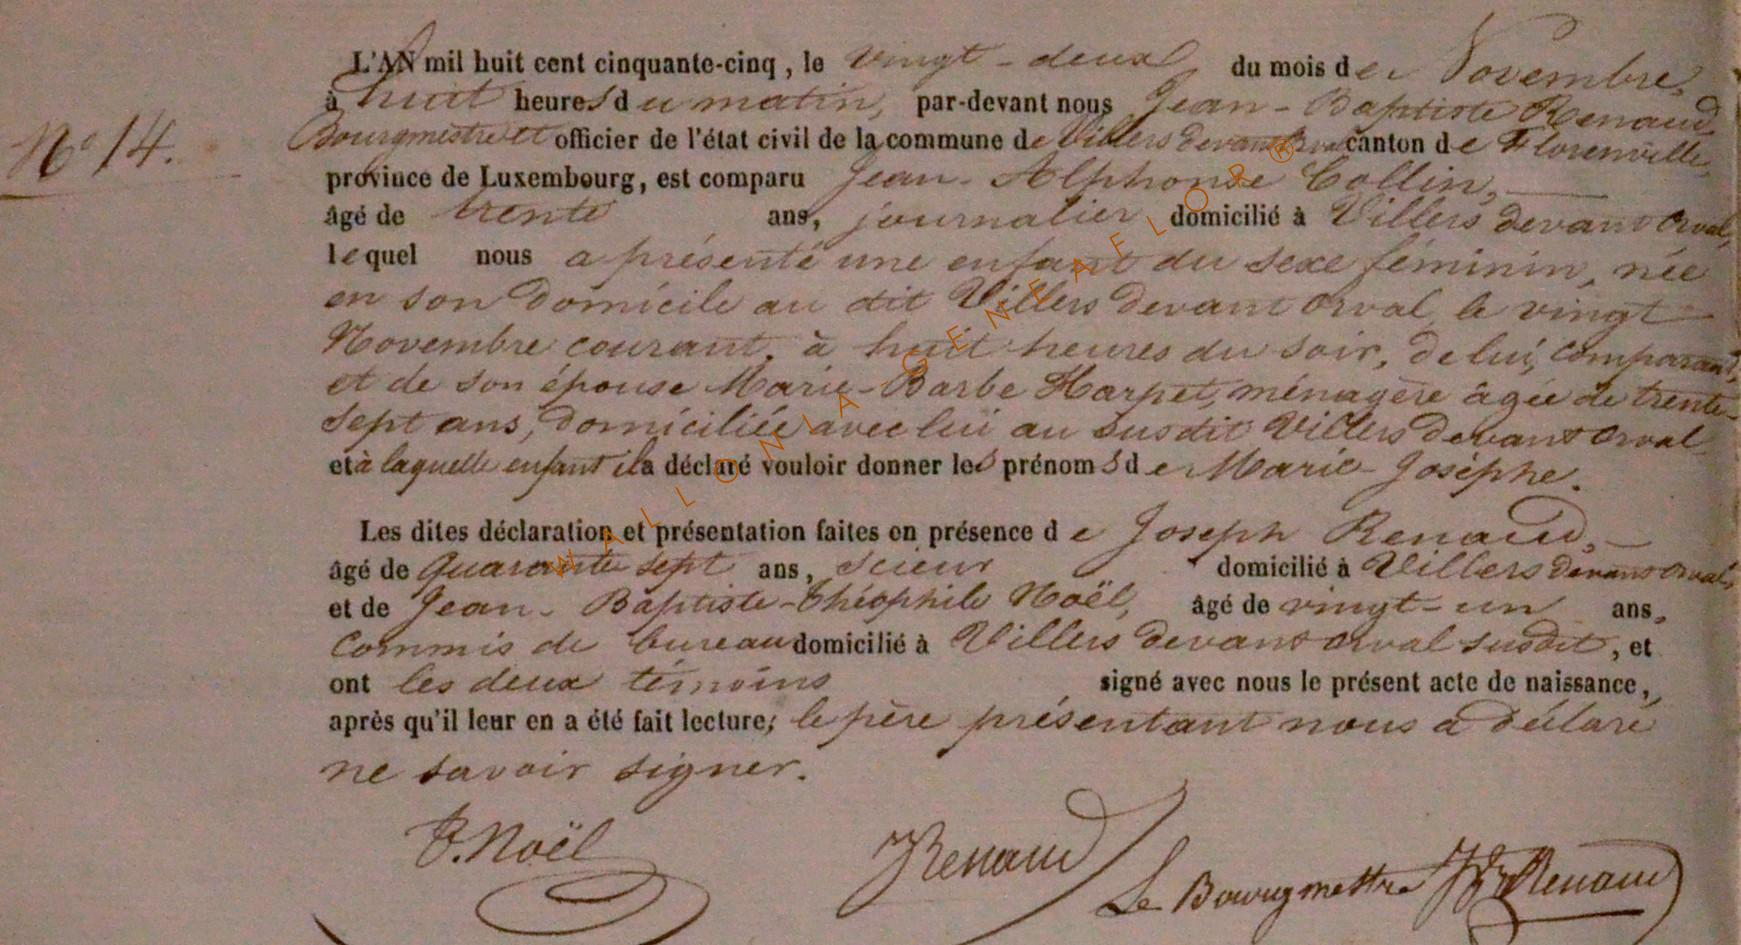 L'AN mil huit cent cinquante-cinq, le vingt-deux du mois de Novembre,
à huit heures du matin, par-devant nous Jean-Baptiste Renaud
N° 14.
Bourgmestre et officier de l'état civil de la commune de Villers devant Orval canton de Florenville,
province de Luxembourg, est comparu Jean-Alphonse Collin,
âgé de trente ans, journalier domicilié à Villers devant Orval,
lequel nous a présenté une enfant du sexe féminin, née
en son domicile au dit Villers devant Orval le vingt
Novembre courant, à huit heures du soir, de lui comparant,
et de son épouse Marie-Barbe Harpet, ménagère âgée de trente-
sept ans, domiciliée avec lui au susdit Villers devant Orval
et à laquelle enfant il a déclaré vouloir donner les prénoms de Marie-Josèphe.
Les dites déclaration et présentation faites en présence de Joseph Renaud,
âgé de quarante sept ans, scieur domicilié à Villers devant Orval,
et de Jean-Baptiste-Théophile Noël, âgé de vingt-un ans,
commis de bureau domicilié à Villers devant Orval susdit, et
ont les deux témoins signé avec nous le présent acte de naissance,
après qu'il leur en a été fait lecture; le père présentant nous a déclaré
ne savoir signer.
T. Noël
JRenaud
Le Bourgmestre JB Renaud
WALLONIA GENEAFLOR®